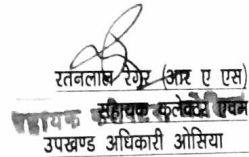 रतनलाल रैगर (आर ए एस)
सहायक कलेक्टर एवम
उपखण्ड अधिकारी ओसिया